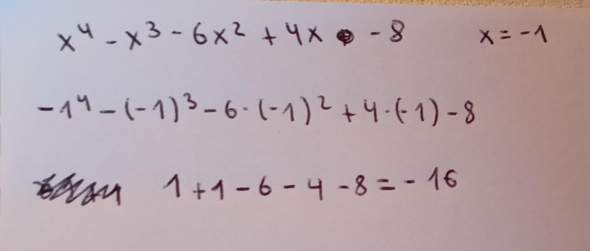 x⁴ - x³ - 6x² + 4x - 8 x = -1
-1⁴ - (-1)³ - 6 · (-1)² + 4 · (-1) - 8
1 + 1 - 6 - 4 - 8 = - 16